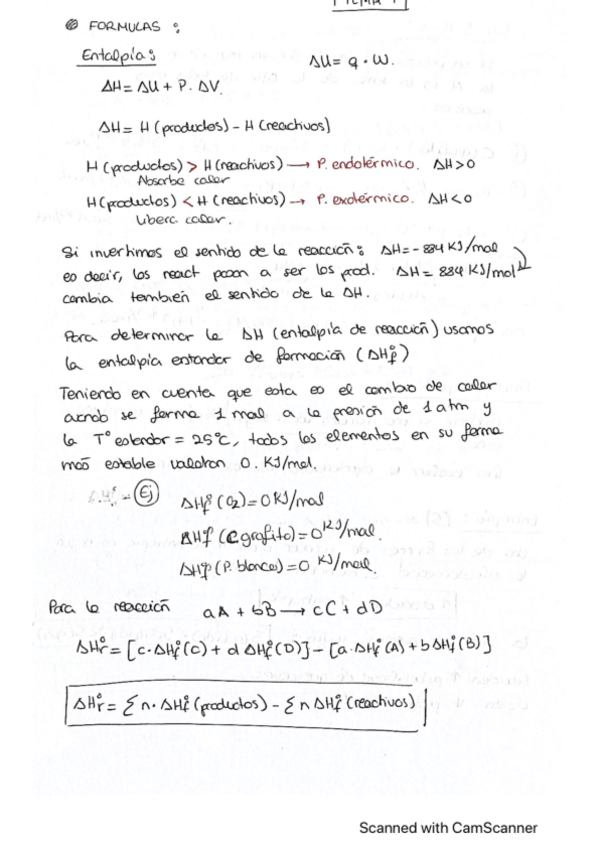 FORMULAS :
Entalpía:
ΔU = q + W.
ΔH = ΔU + P. ΔV.
ΔH = H (productos) - H (reactivos)
H (productos) > H (reactivos) → P. endotérmico. ΔH > 0
Absorbe calor
H (productos) < H (reactivos) → P. exotérmico. ΔH < 0
libera calor.
Si invertimos el sentido de la reacción: ΔH = - 884 KJ/mol
es decir, los react pasan a ser los prod. ΔH = 884 KJ/mol
cambia también el sentido de la ΔH.
Para determinar la ΔH (entalpía de reacción) usamos
la entalpía estandar de formación (ΔH°f)
Teniendo en cuenta que esta es el cambio de calor
cuando se forma 1 mol a la presión de 1 atm y
la T° estandar = 25°C, todos los elementos en su forma
más estable valdran 0. KJ/mol.
Ej
ΔH°f (O2) = 0 KJ/mol
ΔH°f (C grafito) = 0 KJ/mol.
ΔH°f (P. blanco) = 0 KJ/mol.
Para la reacción aA + bB → cC + dD
ΔH°r = [c. ΔH°f (C) + d ΔH°f (D)] - [a. ΔH°f (A) + b ΔH°f (B)]
ΔH°r = Σ n. ΔH°f (productos) - Σ n ΔH°f (reactivos)
Scanned with CamScanner